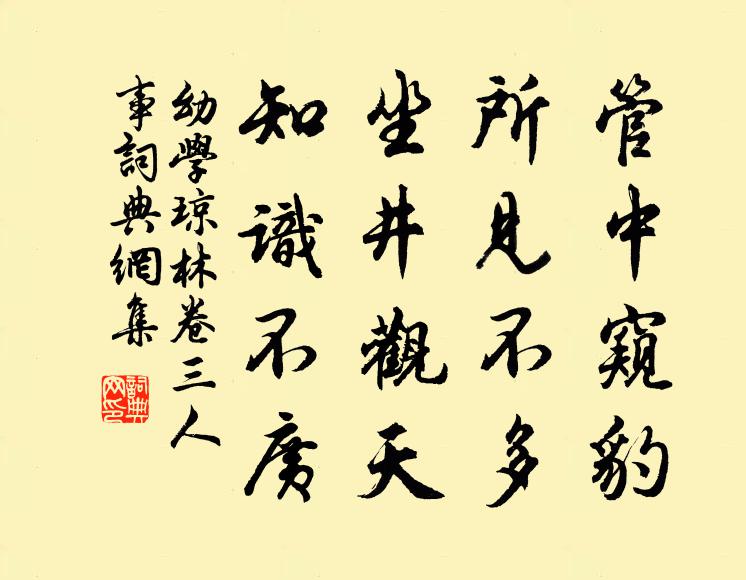 管中窺豹
所見不多
坐井觀天
知識不廣
幼學琼林卷三人
事詞典網集
詞典
网印